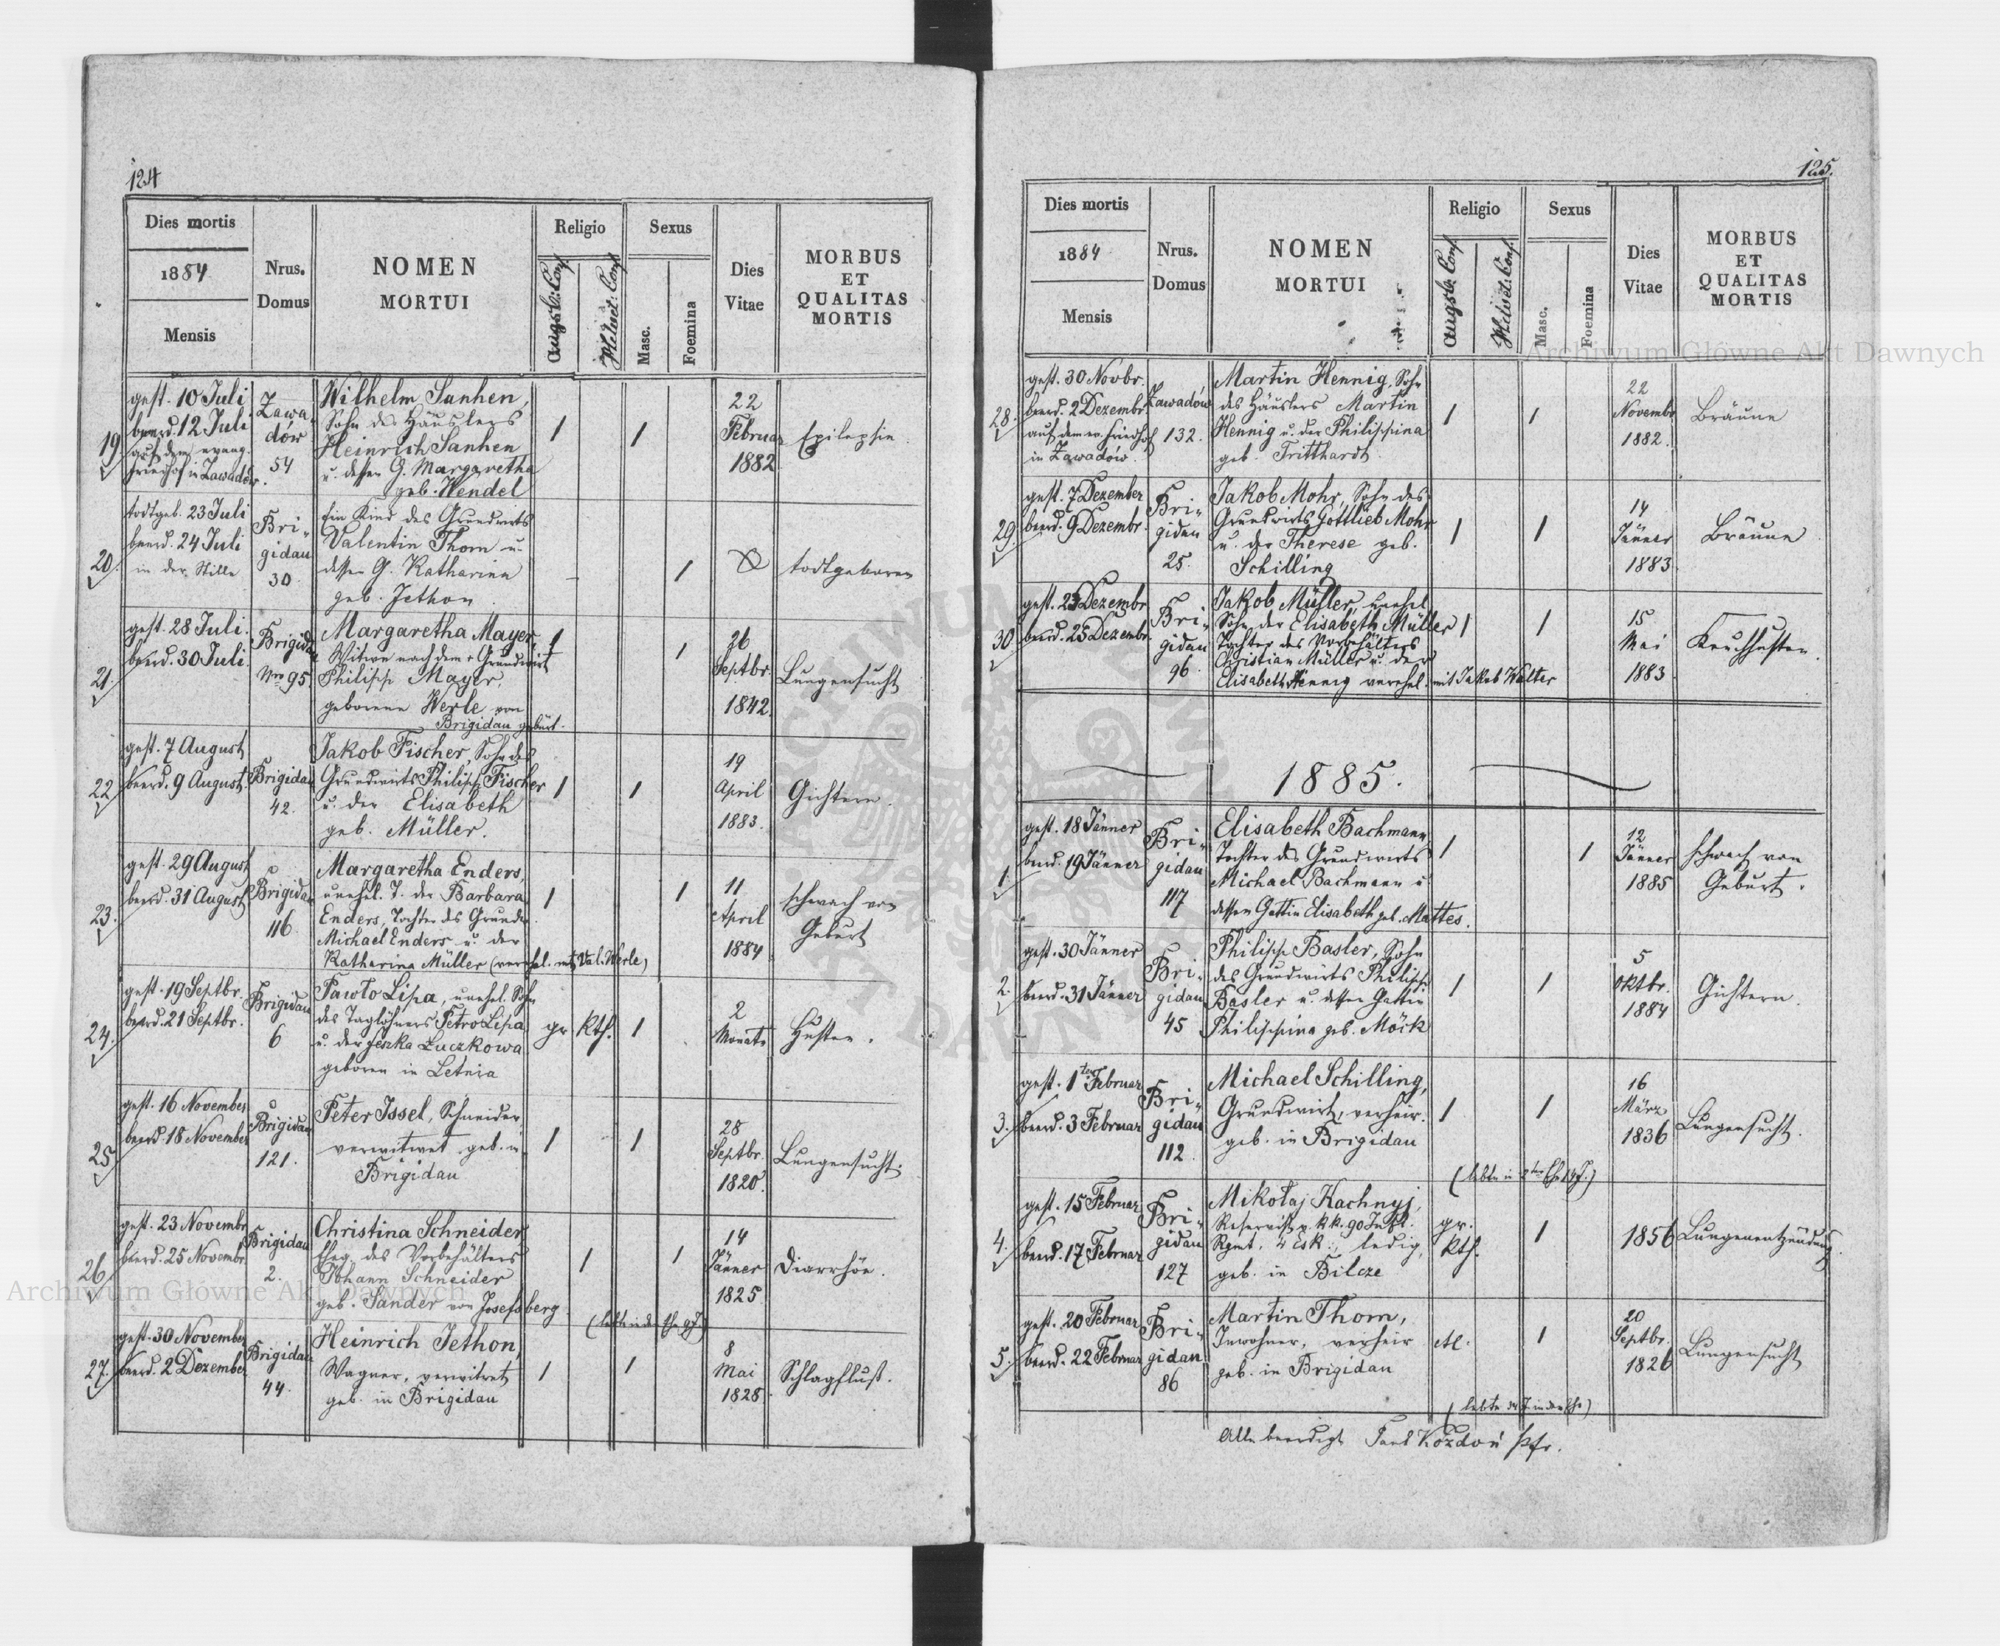 124
Dies mortis
1884
Mensis
Nrus.
Domus
NOMEN
MORTUI
Religio
Augsb. Conf.
Helvet. Conf.
Sexus
Masc.
Foemina
Dies
Vitae
MORBUS
ET
QUALITAS
MORTIS
19.
gest. 10 Juli
beerd. 12 Juli
auf dem evang.
Friedhof in Zawadów.
Zawa-
dów
54
Wilhelm Sanhen,
Sohn des Häuslers
Heinrich Sanhen
u. dessen G. Margaretha
geb. Wendel
1
1
22
Februar
1882
Epilepsie.
20.
todtgeb. 23 Juli
beerd. 24 Juli
in der Stille
Bri-
gidau
30.
Ein Kind des Grundwirts
Valentin Thom u.
dessen G. Katharina
geb. Jethon.
-
1
todtgeboren
21.
gest. 28 Juli.
beerd. 30 Juli.
Brigidau
Nro 95.
Margaretha Mayer,
Witwe nach dem + Grundwirt
Philipp Mayer,
geborene Werle von
Brigidau gebürt.
1
1
26
Septbr.
1842.
Lungensucht
22.
gest. 7 August
beerd. 9 August.
Brigidau
42.
Jakob Fischer, Sohn des
Grundwirts Philipp Fischer
u. der Elisabeth
geb. Müller.
1
1
19
April
1883.
Gichtern.
23.
gest. 29 August
beerd. 31 August
Brigidau
116
Margaretha Enders,
unehel. T. der Barbara
Enders, Tochter des Grundw.
Michael Enders u. der
Katharina Müller (verehel. mit Val. Werle)
1
1
11
April
1884
schwach von
Geburt
24.
gest. 19 Septbr.
beerd. 21 Septbr.
Brigidau
6
Pawło Lipa, unehel. Sohn
des Taglöhners Petro Lipa
u. der Jenka Łuczkowa
geboren in Letnia
gr. kth.
1
2
Monate
Husten.
25.
gest. 16 November
beerd. 18 November
Brigidau
121.
Peter Issel, Schneider,
verwitwet geb. in
Brigidau
1
1
28
Septbr.
1820.
Lungensucht.
26.
gest. 23 Novembr.
beerd. 25 Novembr.
Brigidau
2.
Christina Schneider
Eheg. des Vorbehälters
Johann Schneider
geb. Sander von Josefsberg
1
1
14
Jänner
1825
Diarrhöe.
27.
gest. 30 November
beerd. 2 Dezember
Brigidau
44.
Heinrich Jethon,
Wagner, verwitwet
geb. in Brigidau
1
1
8
Mai
1828.
Schlagfluß.
125.
Dies mortis
1884
Mensis
Nrus.
Domus
NOMEN
MORTUI
Religio
Augsb. Conf.
Helvet. Conf.
Sexus
Masc.
Foemina
Dies
Vitae
MORBUS
ET
QUALITAS
MORTIS
28.
gest. 30 Novbr.
beerd. 2 Dezembr.
auf dem ev. Friedhof
in Zawadów.
Zawadów
132.
Martin Hennig, Sohn
des Häuslers Martin
Hennig u. der Philippina
geb. Tritthardt.
1
1
22
Novembr.
1882.
Bräune
29.
gest. 7 Dezember
beerd. 9 Dezembr.
Bri-
gidau
25.
Jakob Mohr, Sohn des
Grundwirts Gottlieb Mohr
u. der Therese geb.
Schilling
1
1
14
Jänner
1883.
Bräune.
30.
gest. 23 Dezembr
beerd. 25 Dezembr.
Bri-
gidau
96.
Jakob Müller, unehel.
Sohn der Elisabeth Müller
Tochter des Vorbehälters
Christian Müller u. der
Elisabeth Hennig verehel. mit Jakob Walter
1
1
15
Mai
1883.
Keuchhusten.
1885.
1.
gest. 18 Jänner
beerd. 19 Jänner
Bri-
gidau
117
Elisabeth Bachmann
Tochter des Grundwirts
Michael Bachmann u.
dessen Gattin Elisabeth geb. Mattes.
1
1
12
Jänner
1885
schwach von
Geburt.
2.
gest. 30 Jänner
beerd. 31 Jänner
Bri-
gidau
45
Philipp Basler, Sohn
des Grundwirts Philipp
Basler u. dessen Gattin
Philippina geb. Möck
1
1
5
Oktbr.
1884
Gichtern.
3.
gest. 1ten Februar
beerd. 3 Februar
Bri-
gidau
112.
Michael Schilling,
Grundwirt, verheir.
geb. in Brigidau
1
1
16
März
1836
Lungensucht.
(lebte in 2ter Ehe 19 J.)
4.
gest. 15 Februar
beerd. 17 Februar
Bri-
gidau
127
Mikołaj Kachnyj,
Reservist v. kk. 90 Inft.
Rgmt. 4 Esk., ledig,
geb. in Bilcze
gr.
kth.
1
1856
Lungenentzündung.
5.
gest. 20 Februar
beerd. 22 Februar
Bri-
gidau
86
Martin Thom,
Inwohner, verheir
geb. in Brigidau
1
20
Septbr.
1826
Lungensucht
Alle beerdigt Paul Kozdoń Pfr.
Archiwum Główne Akt Dawnych
Archiwum Główne Akt Dawnych